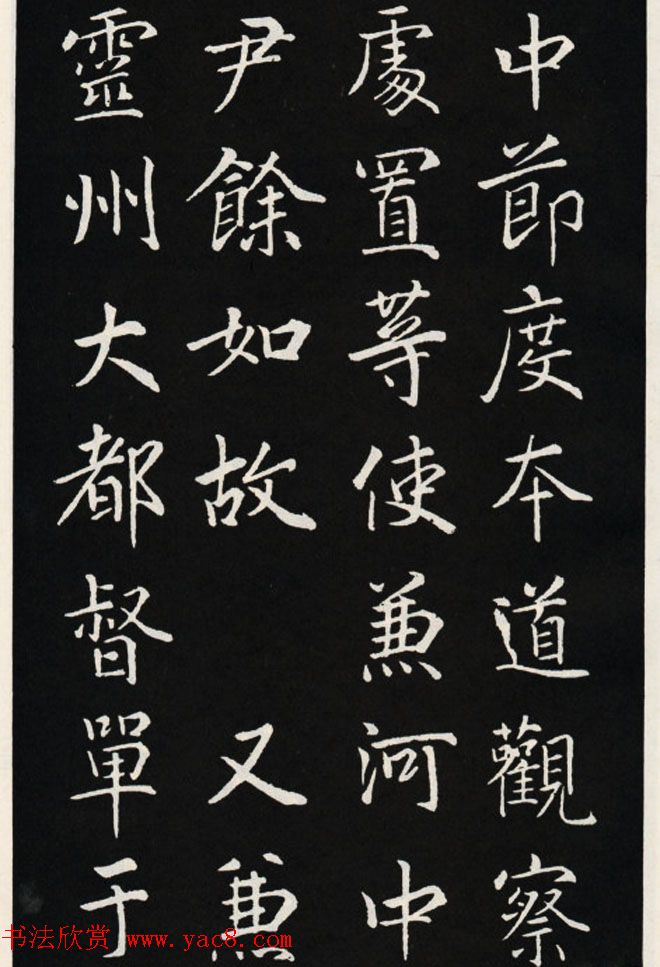 中節度本道觀察
處置等使兼河中
尹餘如故 又兼
靈州大都督單于
书法欣赏 www.yac8.com